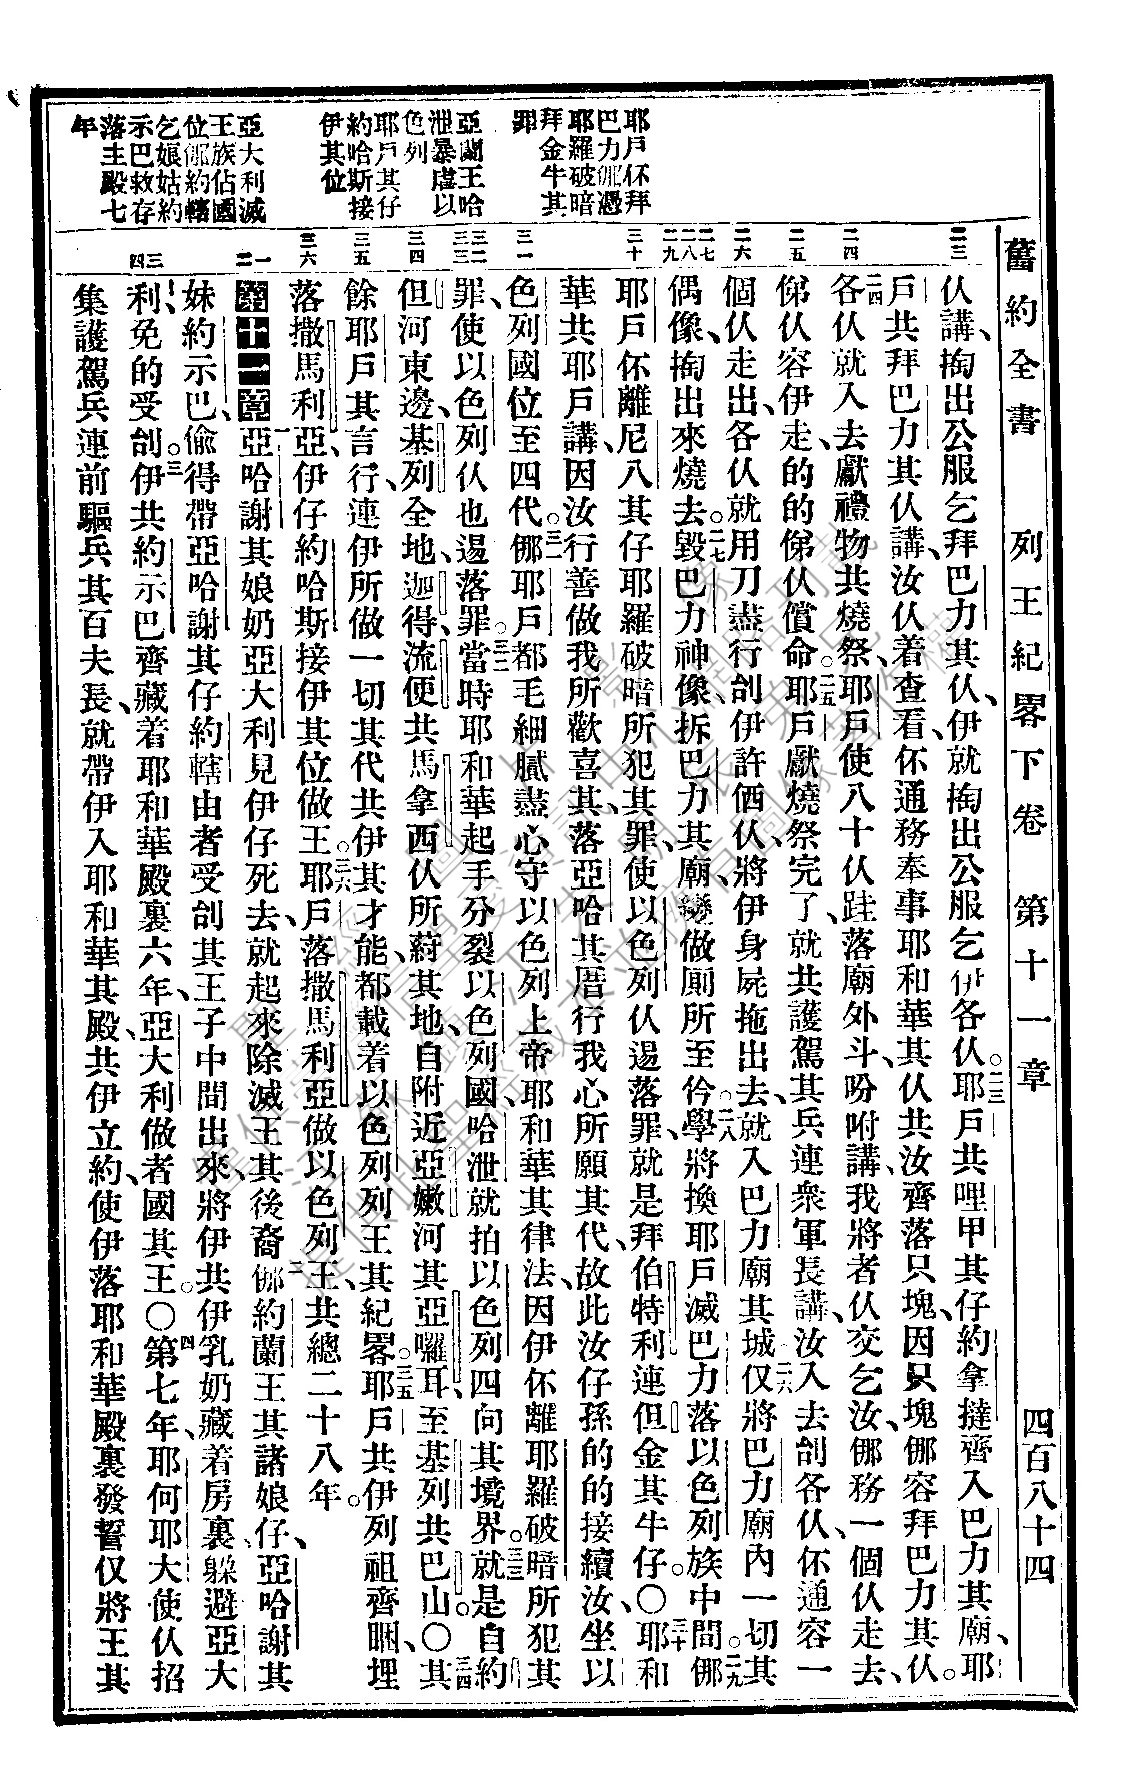 舊約全書　列王紀畧下卷　第十一章　四百八十四
耶戶伓拜
巴力𠆧憑
耶羅破暗
拜金牛其
罪
亞蘭王哈
泄暴虐以
色列
耶戶其仔
約哈斯接
伊其位
亞大利滅
王族佔國
位𠆧約轄
乞娘姑約
示巴救存
落主殿七
年
二三
二四
二五
二六
二七
二八
二九
三十
三一
三二
三三
三四
三五
三六
一
二
三
四
伩講、掏出公服乞拜巴力其伩、伊就掏出公服乞伊各伩。二三耶戶共哩甲其仔約拿撻齊入巴力其廟、耶
戶共拜巴力其伩講、汝伩着查看、伓通務奉事耶和華其伩共汝齊落只塊、因只塊𠆧容拜巴力其伩。
二四各伩就入去獻禮物共燒祭、耶戶使八十伩跓落廟外斗、吩咐講、我將者伩交乞汝、𠆧務一個伩走去、
俤伩容伊走、的的俤伩償命。二五耶戶獻燒祭完了、就共護駕其兵連衆軍長講、汝入去刣各伩、伓通容一
個伩走出、各伩就用刀盡行刣伊、許𠆧伩、將伊身屍拖出去、就入巴力廟其城、二六仅將巴力廟內一切其
偶像、掏出來燒去。二七毀巴力神像、拆巴力其廟、變做厠所至仱學。二八將換耶戶滅巴力落以色列族中間。二九𠆧
耶戶伓離尼八其仔耶羅破暗所犯其罪、使以色列伩遏落罪、就是拜伯特利連但金其牛仔。〇三十耶和
華共耶戶講、因汝行善做我所歡喜其、落亞哈其厝行我心所願其代、故此汝仔孫的的接續汝、坐以
色列國位至四代。三一𠆧耶戶都毛細膩盡心守以色列上帝耶和華其律法、因伊伓離耶羅破暗所犯其
罪、使以色列伩也遏落罪。三二當時耶和華起手分裂以色列國、哈泄就拍以色列四向其境界。三三就是自約
但河東邊、基列全地、迦得、流便、共馬拿西伩所蒔其地、自附近亞嫩河其亞囉耳、至基列共巴山。〇三四其
餘耶戶其言行、連伊所做一切其代、共伊其才能、都載着以色列列王其紀畧。三五耶戶共伊列祖齊睏、埋
落撒馬利亞、伊仔約哈斯接伊其位做王。三六耶戶落撒馬利亞做以色列王、共總二十八年。
第十一章、一亞哈謝其娘奶亞大利、見伊仔死去、就起來除滅王其後裔。二𠆧約蘭王其諸娘仔、亞哈謝其
妹約示巴、偷得帶亞哈謝其仔約轄、由者受刣其王子中間出來、將伊共伊乳奶藏着房裏、躲避亞大
利、免的受刣。三伊共約示巴齊藏着耶和華殿裏六年、亞大利做者國其王。〇四第七年、耶何耶大使伩招
集護駕兵連前驅兵其百夫長、就帶伊入耶和華其殿、共伊立約、使伊落耶和華殿裏發誓、仅將王其